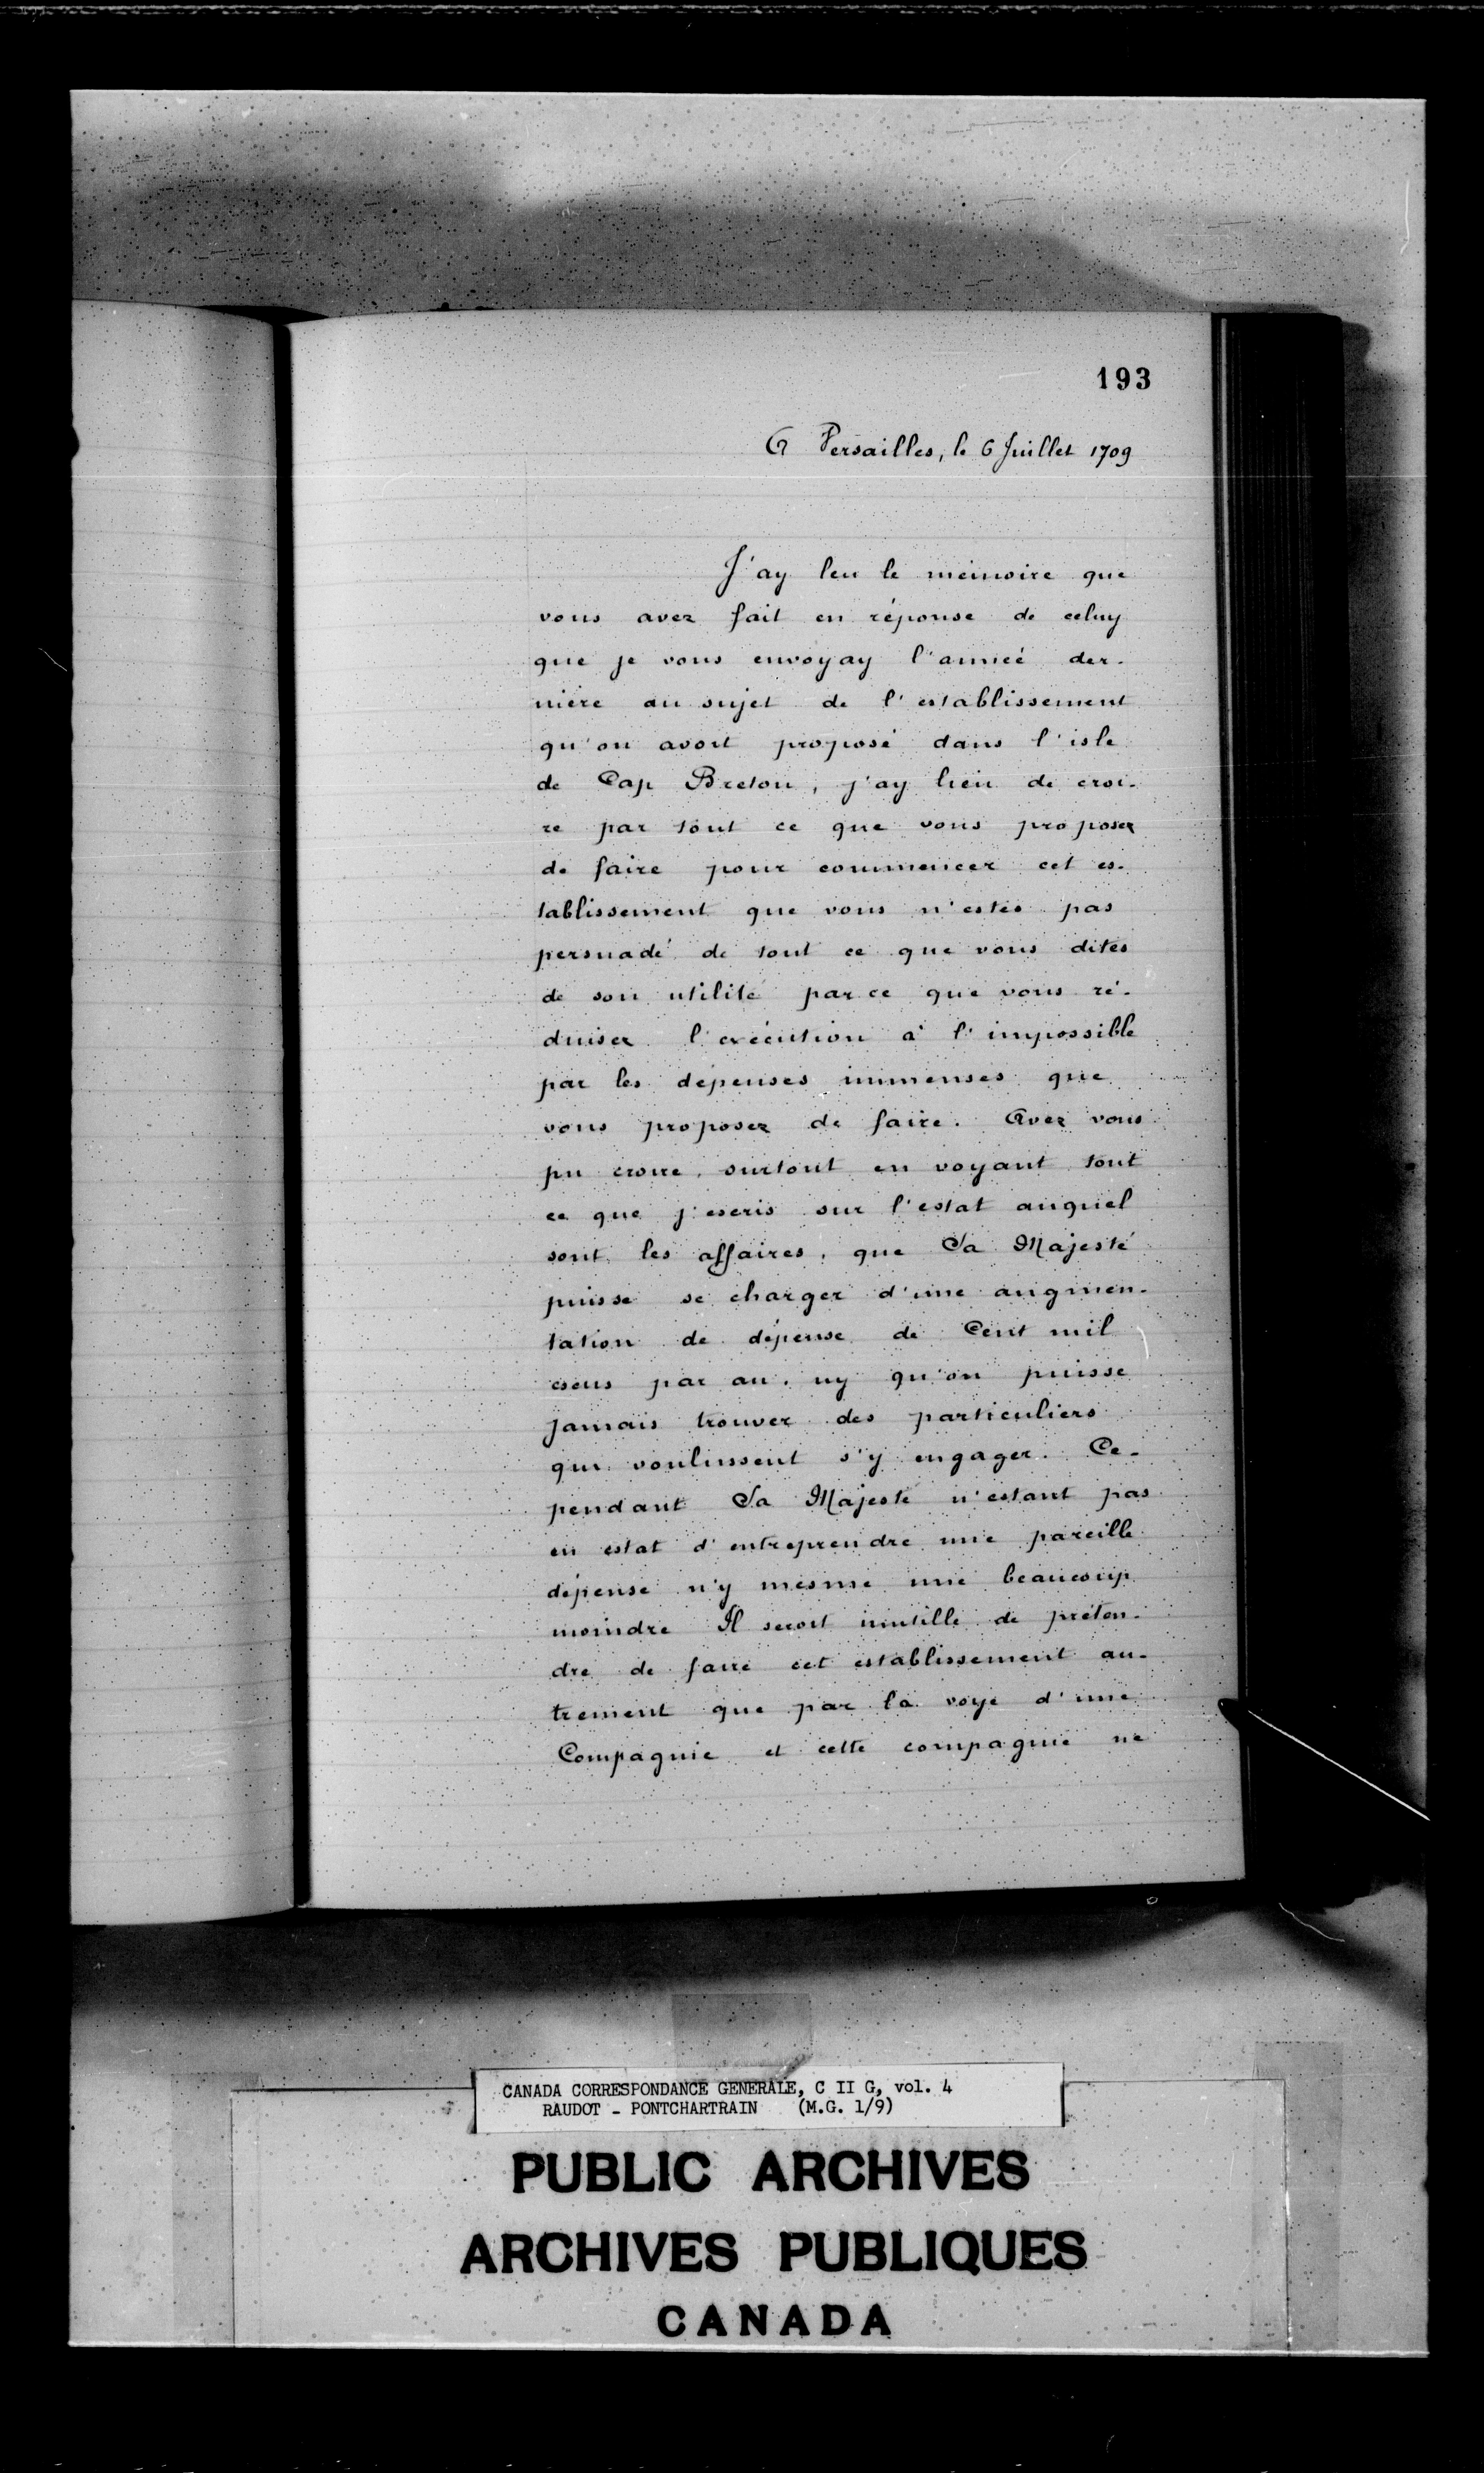 193
A Versailles, le 6 Juillet 1709
J'ay leu le mémoire que
vous avez fait en réponse de celuy
que je vous envoyay l'année der-
nière au sujet de l'establissement
qu'on avoit proposé dans l'isle
de Cap Breton, j'ay lieu de croi-
re par tout ce que vous proposez
de faire pour commencer cet es-
tablissement que vous n'estes pas
persuadé de tout ce que vous dites
de son utilité parce que vous ré-
duisez l'exécution à l'impossible
par les dépenses immenses que
vous proposez de faire. Avez vous
pu croire, surtout en voyant tout
ce que j'escris sur l'estat auquel
sont les affaires, que Sa Majesté
puisse se charger d'une augmen-
tation de dépense de Cent mil
escus par an, ny qu'on puisse
jamais trouver des particuliers
qui voulussent s'y engager. Ce-
pendant Sa Majesté n'estant pas
en estat d'entreprendre une pareille
dépense n'y mesme une beaucoup
moindre Il seroit inutille de préten-
dre de faire cet establissement au-
trement que par la voye d'une
Compagnie et cette compagnie ne
CANADA CORRESPONDANCE GENERALE, C II G, vol. 4
RAUDOT - PONTCHARTRAIN (M.G. 1/9)
PUBLIC ARCHIVES
ARCHIVES PUBLIQUES
CANADA